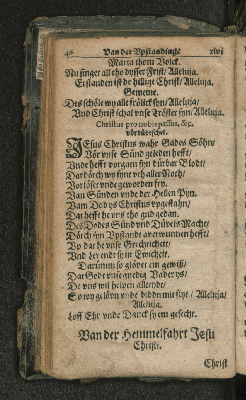 Van der Vpstandinge
Maria thom Volck.
Nu singet all tho dysser Frist/ Alleluja,
Erstanden ist de hillige Christ/ Alleluja.
Gemeine.
Des schöle wy alle frölick syn/ Alleluja/
Vnd Christ schal vnse Tröster syn/ Alleluja.
Christus pro nobis passus, &c.
vördüdeschet.
JEsus Christus wahr Gades Söhn/
Vör vnse Sünd geleden hefft/
Vnde hefft vorgaten syn dürbar Blodt/
Dardörch wy synt vth aller Noth/
Vorlöset vnde geworden fry.
Van Sünden vnde der Hellen Pyn.
Wam Dod ys Christus vpgestahn/
Dat hefft he ons tho gud gedan.
Des Dodes Sünd vnd Düvels Macht/
Dörch syn Vpstandt averwunnen hefft/
Vp dat he vnse Grechticheit/
Vnd Ler endt sy in Ewicheit.
Darümm so glövet em gewiß/
Dat Gode vnse gnedig Vader ys/
De vns wil helpen allendt/
So wy gelövn vnde bidden mit flyt/ Alleluja/
Alleluja.
Loff Ehr vnde Danck sy em gesecht.
Van der Hemmelfahrt Jesu
Christi.
Christ